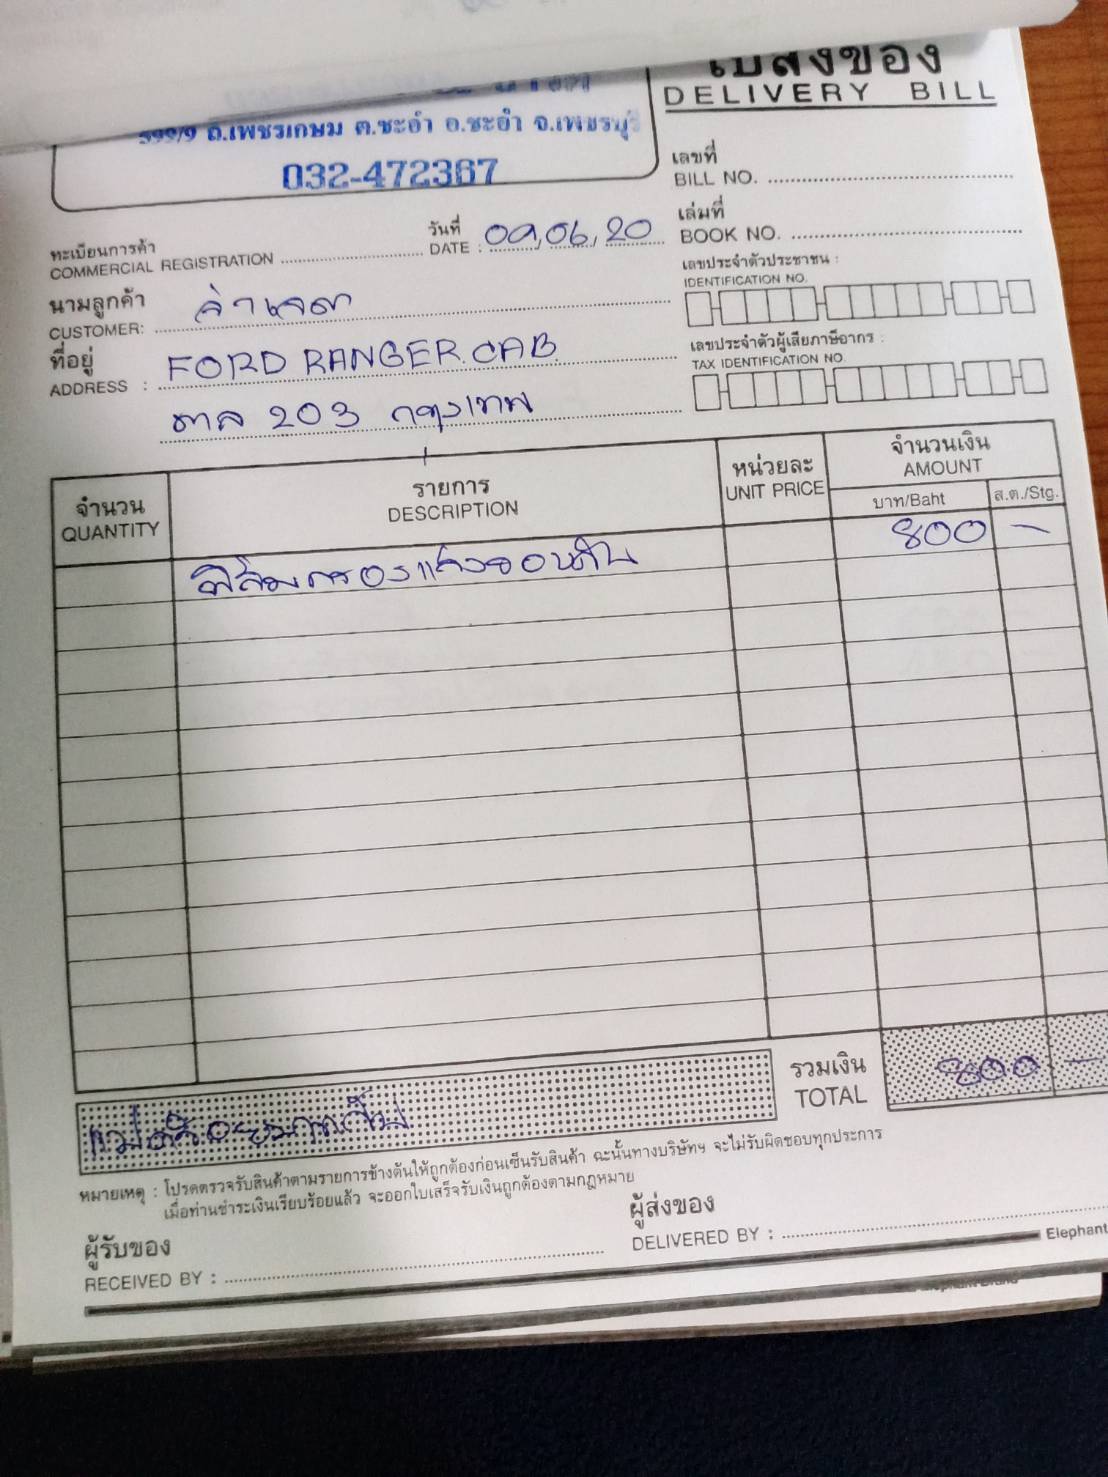 ใบส่งของ
DELIVERY BILL
599/9 ถ.เพชรเกษม ต.ชะอำ อ.ชะอำ จ.เพชรบุรี
032-472367
เลขที่
BILL NO.
ทะเบียนการค้า
COMMERCIAL REGISTRATION
วันที่
DATE : 09,06,20
เล่มที่
BOOK NO.
นามลูกค้า
CUSTOMER:
เลขประจำตัวประชาชน :
IDENTIFICATION NO.
ที่อยู่
ADDRESS : FORD RANGER.CAB
203 กรุงเทพ
เลขประจำตัวผู้เสียภาษีอากร :
TAX IDENTIFICATION NO.
จำนวน
QUANTITY
รายการ
DESCRIPTION
หน่วยละ
UNIT PRICE
จำนวนเงิน
AMOUNT
บาท/Baht
ส.ต./Stg.
ฟิล์มกรองแสง 800 -
รวมเงิน
TOTAL
800 -
หมายเหตุ : โปรดตรวจรับสินค้าตามรายการข้างต้นให้ถูกต้องก่อนเซ็นรับสินค้า ฉะนั้นทางบริษัทฯ จะไม่รับผิดชอบทุกประการ
เมื่อท่านชำระเงินเรียบร้อยแล้ว จะออกใบเสร็จรับเงินถูกต้องตามกฎหมาย
ผู้รับของ
RECEIVED BY :
ผู้ส่งของ
DELIVERED BY :
Elephant